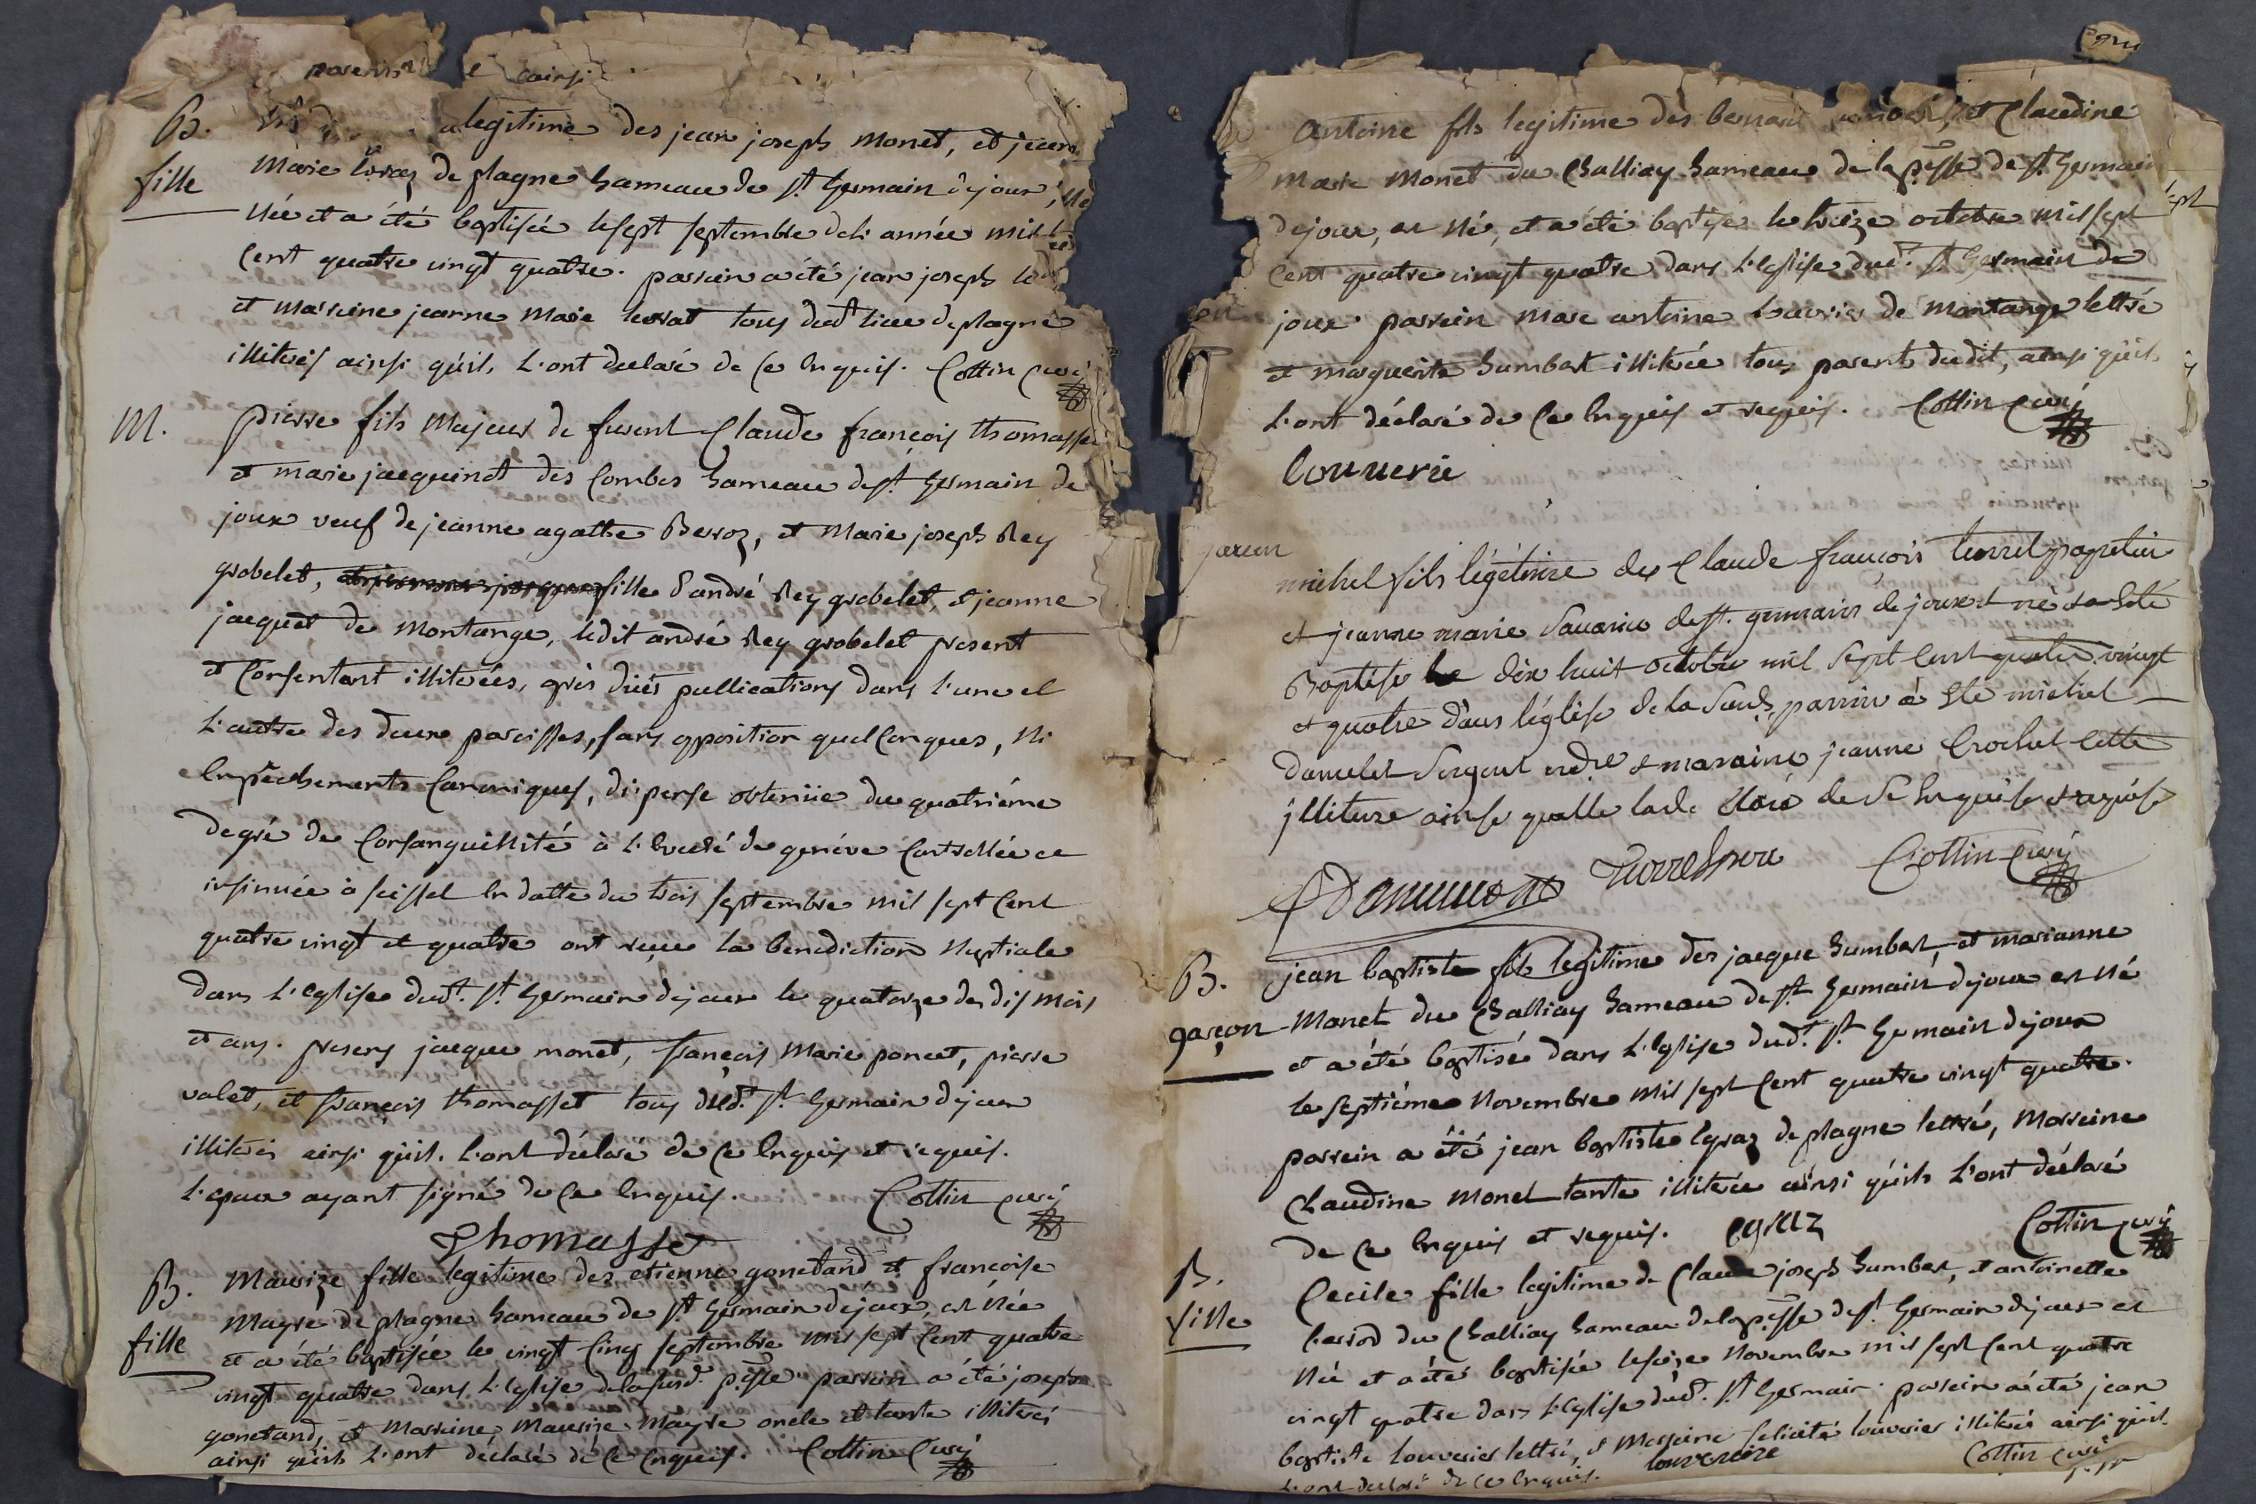 ainsi
B. legitime des jean joseph monet, et jeanne
fille Marie de plagne hameau de st. germain dejoux,
Née et a été baptisée le sept septembre de l'année mil
Cent quatre vingt quatre. parrein a été jean joseph
et marreine jeanne Marie tous dud. lieu de plagne
illiterés ainsi qu'ils l'ont declaré de ce Enquis. Cottin Curé
M. pierre fils Majeur de furent Claude françois thomasse
et marie jacquinot des Combes hameau de st. germain de
joux veuf de jeanne agathe Berroz, et Marie joseph Rey
grobelet, fille d'andré Rey grobelet, et jeanne
jacquet de Montange, ledit andré Rey grobelet présent
et Consentant illiterées, après dües publications dans l'une et
l'autre des deux paroisses, sans opposition quelconques, Ni
Empêchements Canoniques, dispense obtenüe du quatrième
degré de Consanguinité à l'Eveché de genève et
insinuée à seissel En datte du trois septembre mil sept Cent
quatre vingt et quatre ont reçu la benediction Nuptiale
dans l'eglise dud. st. germain dejoux le quatorze des dis mois
et ans. presens jacque monet, françois Marie poncet, pierre
valet, et françois thomasset tous dud. st. germain dejoux
illiterés ainsi qu'ils l'ont déclaré de ce Enquis et requis.
l'epoux ayant signé de ce Enquis. Cottin Curé
Thomasset
B. Maurize fille legitime des etienne gonetand et françoise
fille Mayre de plagne hameau de st. germain dejoux, est Née
et a été baptisée le vingt Cinq septembre mil sept Cent quatre
vingt quatre dans l'Eglise de la susd. psse parrein a été joseph
gonetand, et Marreine Maurize Mayre oncle et tante illiterés
ainsi qu'ils l'ont déclaré de ce Enquis. Cottin Curé
Antoine fils legitime des bernard et Claudine
Marie Monet du Challiay hameau de la psse de st. germain
dejoux, est Né, et a été baptisé le treize octobre mil sept
Cent quatre vingt quatre dans l'Eglise dud. st. germain de
joux parrein Marc antoine de montange lettré
et marguerite humbert illiterée tous parents dudit, ainsi qu'ils
l'ont déclaré de ce Enquis et requis. Cottin Curé
Michel fils légétime de Claude françois
garcon et jeanne marie de st. germain de joux est né et a été
Baptisé le dix huit octobre mil sept cent quatre vingt
et quatre dans l'église de la susd., parrin a été michel
et maraine jeanne Crochet Cette
jlliture ainse quelle la de Claré de se Enquise et requise
Cottin Curé
B. jean baptiste fils legitime des jacque humbert, et marianne
garçon Monet du Challiay hameau de st. germain dejoux est Né
et a été baptisé dans l'Eglise dud. st. germain dejoux
le septième Novembre mil sept Cent quatre vingt quatre.
parrein a été jean baptiste Egraz de plagne lettré, Marreine
Claudine Monet tante illiterée ainsi qu'ils l'ont déclaré
de ce Enquis et requis. Egraz Cottin Curé
B. Cecile fille legitime de Claude joseph humbert, et antoinette
fille du Challiay hameau de la psse de st. germain dejoux est
Née et a été baptisée le seize Novembre mil sept Cent quatre
vingt quatre dans l'Eglise dud. st. germain. parrein a été jean
baptiste louvrier lettré, et Marreine felicité louvrier illiterée ainsi qu'ils
l'ont declaré de ce Enquis. Cottin Curé